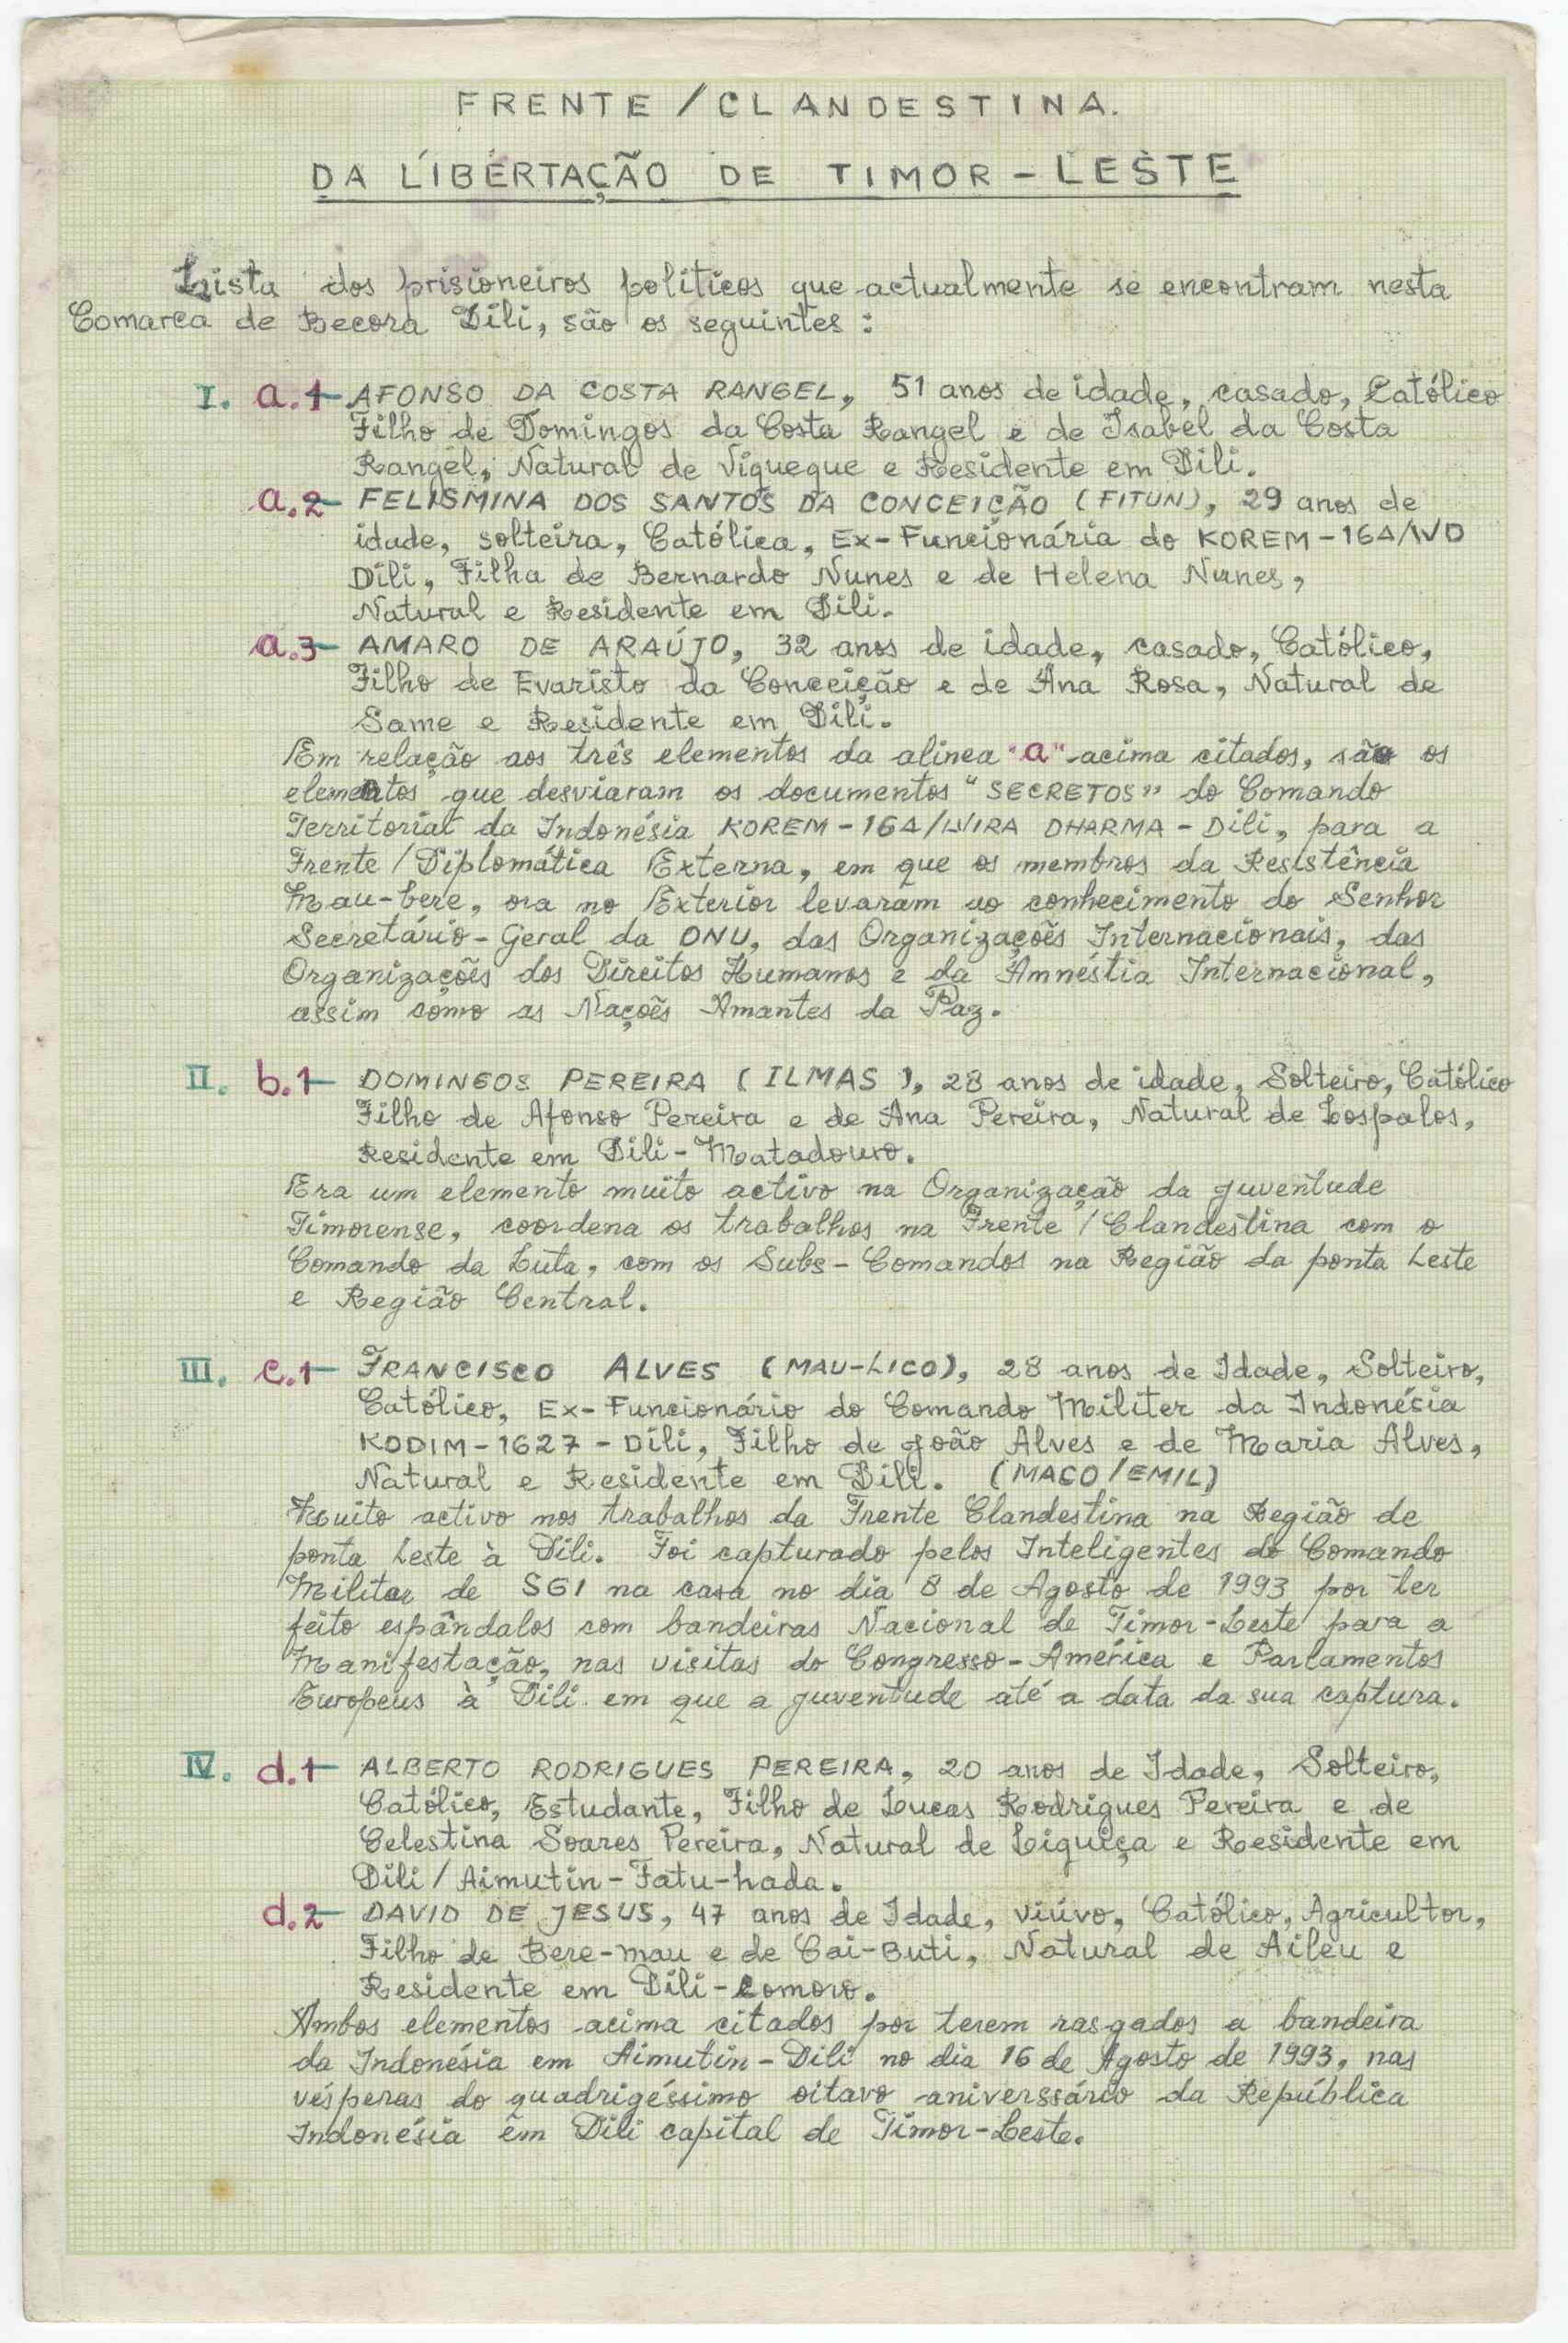 FRENTE / CLANDESTINA.
DA LIBERTAÇÃO DE TIMOR - LESTE
Lista dos prisioneiros políticos que actualmente se encontram nesta
Comarca de Becora Díli, são os seguintes :
I. a.1- AFONSO DA COSTA RANGEL, 51 anos de idade, casado, Católico
Filho de Domingos da Costa Rangel e de Isabel da Costa
Rangel, Natural de Viqueque e Residente em Díli.
a.2- FELISMINA DOS SANTOS DA CONCEIÇÃO (FITUN), 29 anos de
idade, solteira, Católica, Ex-Funcionária do KOREM-164/WD
Díli, Filha de Bernardo Nunes e de Helena Nunes,
Natural e Residente em Díli.
a.3- AMARO DE ARAÚJO, 32 anos de idade, casado, Católico,
Filho de Evaristo da Conceição e de Ana Rosa, Natural de
Same e Residente em Díli.
Em relação aos três elementos da alinea "a" acima citados, são os
elementos que desviaram os documentos "SECRETOS" do Comando
Territorial da Indonésia KOREM-164/WIRA DHARMA - Díli, para a
Frente / Diplomática Externa, em que os membros da Resistência
Mau-bere, ora no Exterior levaram ao conhecimento do Senhor
Secretário-Geral da ONU, das Organizações Internacionais, das
Organizações dos Direitos Humanos e da Amnéstia Internacional,
assim como as Nações Amantes da Paz.
II. b.1- DOMINGOS PEREIRA (ILMAS), 28 anos de idade, Solteiro, Católico
Filho de Afonso Pereira e de Ana Pereira, Natural de Lospalos,
Residente em Díli-Matadouro.
Era um elemento muito activo na Organização da juventude
Timorense, coordena os trabalhos na Frente / Clandestina com o
Comando da Luta, com os Subs-Comandos na Região da ponta Leste
e Região Central.
III. c.1- FRANCISCO ALVES (MAU-LICO), 28 anos de Idade, Solteiro,
Católico, Ex-Funcionário do Comando Militer da Indonésia
KODIM-1627 - Díli, Filho de João Alves e de Maria Alves,
Natural e Residente em Díli. (MACO / EMIL)
Muito activo nos trabalhos da Frente Clandestina na Região de
ponta Leste à Díli. Foi capturado pelos Inteligentes do Comando
Militar de SGI na casa no dia 8 de Agosto de 1993 por ter
feito espândalos com bandeiras Nacional de Timor-Leste para a
Manifestação, nas visitas do Congresso-América e Parlamentos
Europeus à Díli em que a juventude até a data da sua captura.
IV. d.1- ALBERTO RODRIGUES PEREIRA, 20 anos de Idade, Solteiro,
Católico, Estudante, Filho de Lucas Rodrigues Pereira e de
Celestina Soares Pereira, Natural de Liquiça e Residente em
Díli / Aimutin-Fatu-hada.
d.2- DAVID DE JESUS, 47 anos de Idade, viúvo, Católico, Agricultor,
Filho de Bere-mau e de Cai-Buti, Natural de Aileu e
Residente em Díli-Comoro.
Ambos elementos acima citados por terem rasgados a bandeira
da Indonésia em Aimutin-Díli no dia 16 de Agosto de 1993, nas
vésperas do quadrigéssimo oitavo aniverssário da República
Indonésia em Díli capital de Timor-Leste.